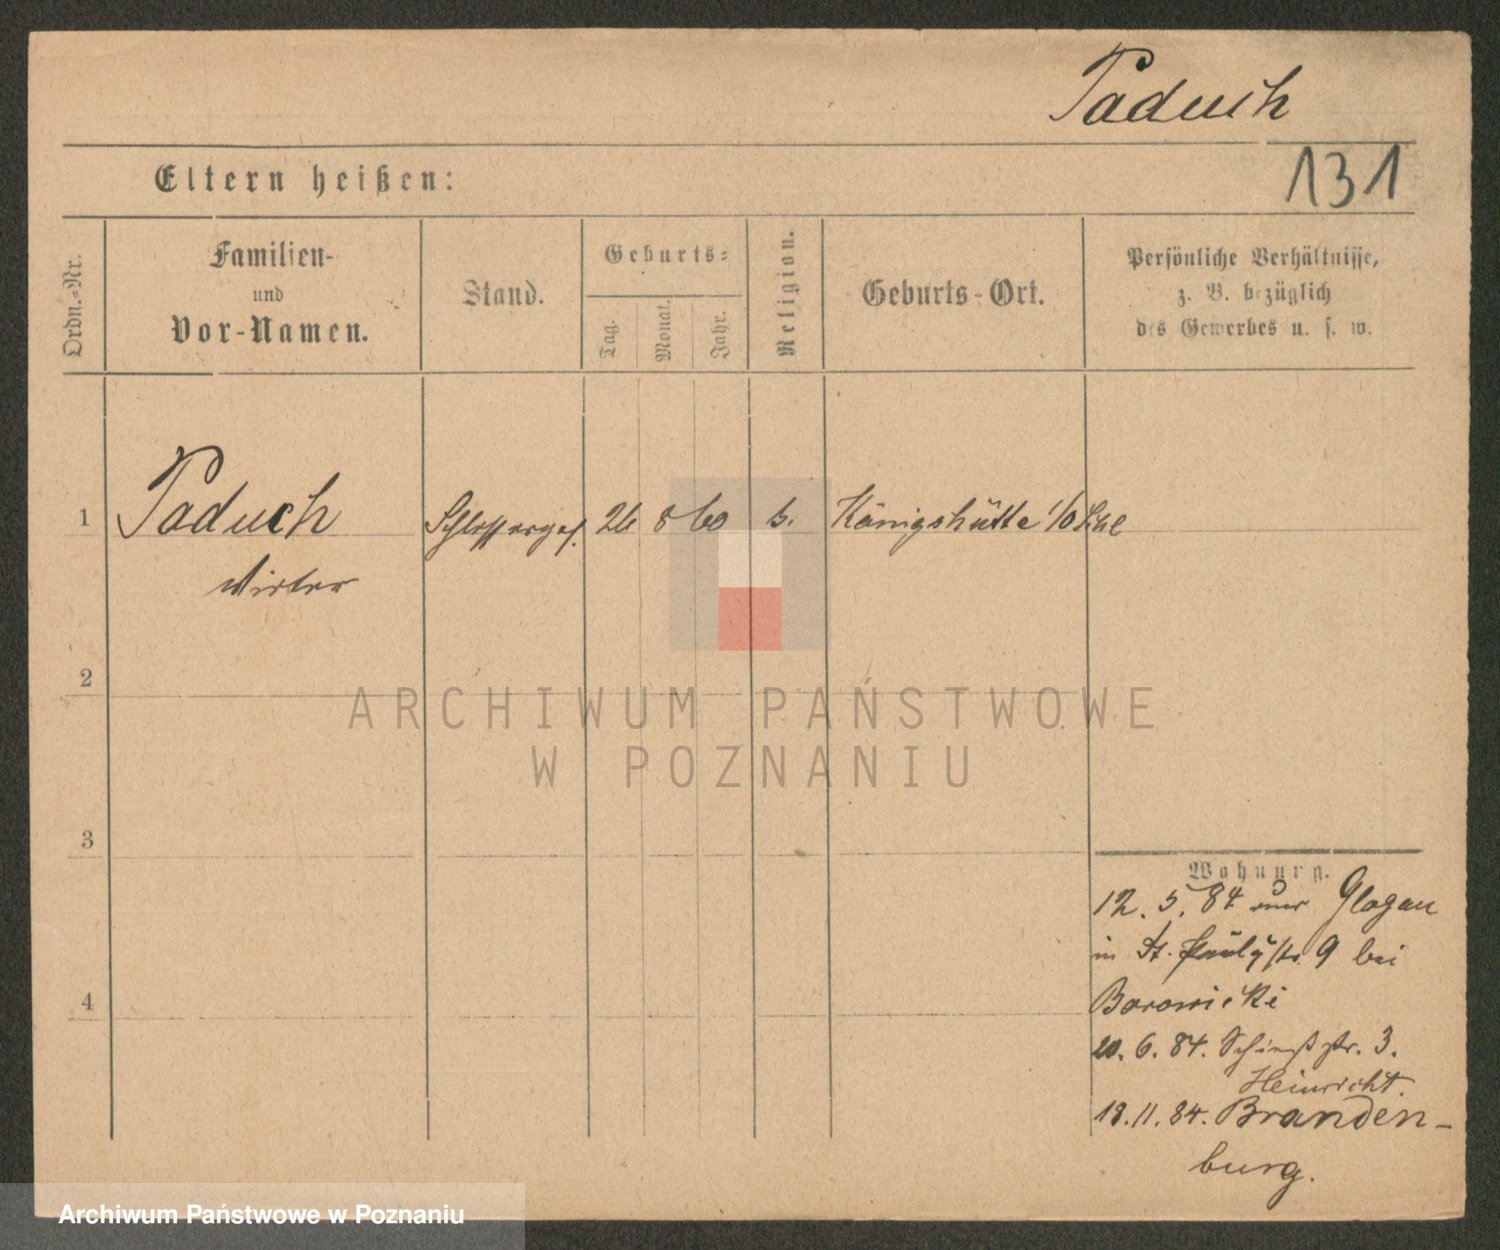 Paduch
131
Eltern heißen:
Ordn.-Nr.
Familien-
und
Vor-Namen.
Stand.
Geburts-
Tag.
Monat.
Jahr.
Religion.
Geburts-Ort.
Persönliche Verhältnisse,
z. B. bezüglich
des Gewerbes u. s. w.
1
Paduch
Schlosserges. 26 8 60
Königshütte
2
3
4
Wohnung.
12. 5. 84 aus Glogau
in St. Paulystr. 9 bei
Borowicki
20. 6. 84. Schießstr. 3.
18. 11. 84. Branden-
burg.
ARCHIWUM PAŃSTWOWE
W POZNANIU
Archiwum Państwowe w Poznaniu